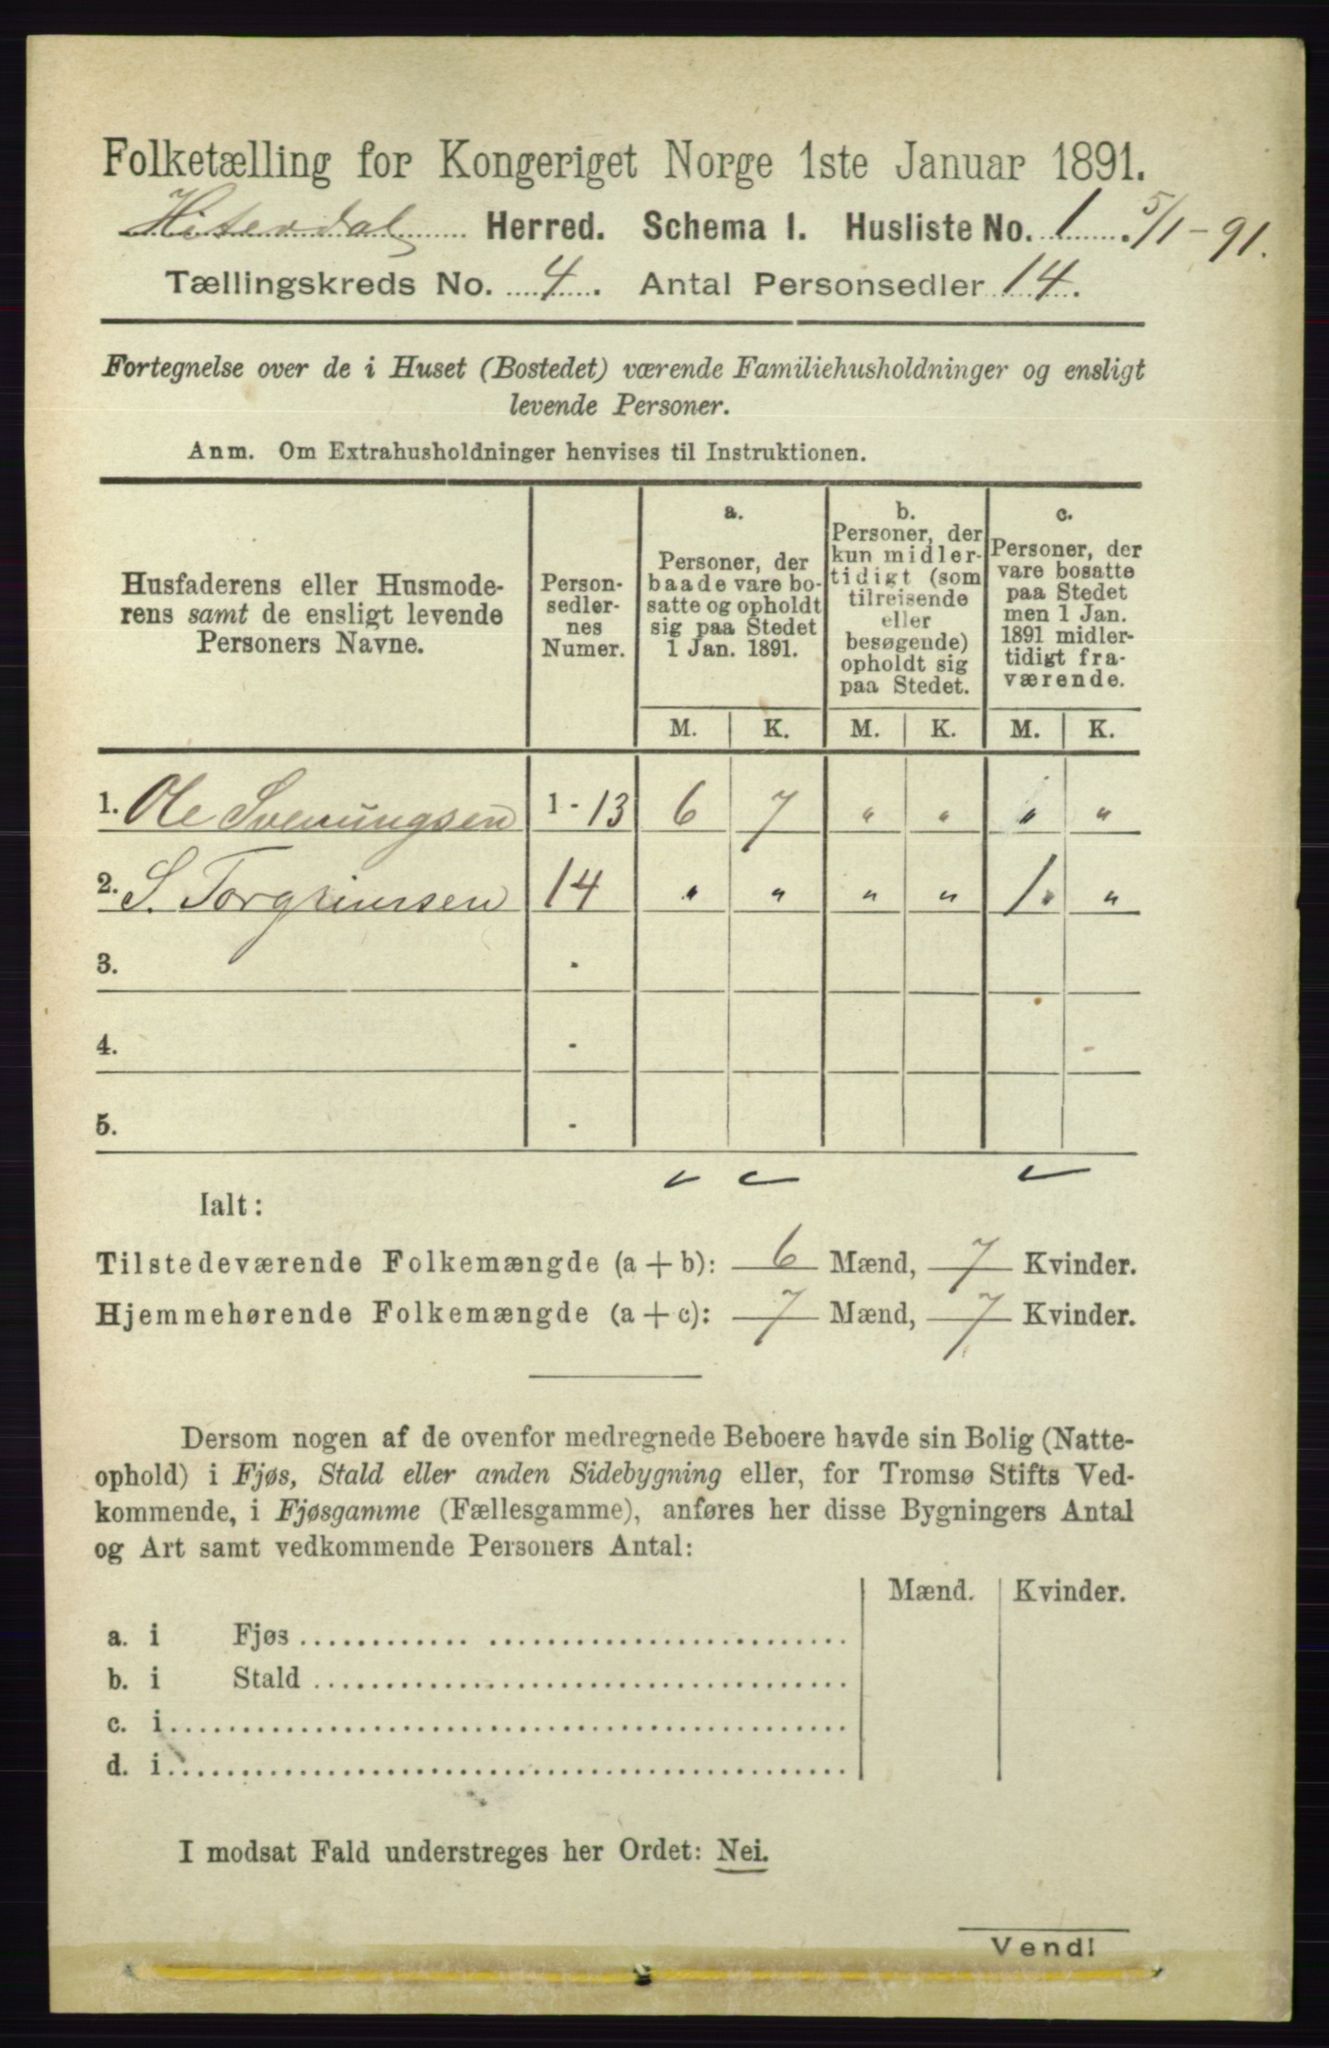 Folketælling for Kongeriget Norge 1ste Januar 1891.
Hiterdal Herred. Schema I. Husliste No. 1. 5/1-91.
Tællingskreds No. 4. Antal Personsedler 14.
Fortegnelse over de i Huset (Bostedet) værende Familiehusholdninger og ensligt
levende Personer.
Anm. Om Extrahusholdninger henvises til Instruktionen.
Husfaderens eller Husmode-
rens samt de ensligt levende
Personers Navne.
Person-
sedler-
nes
Numer.
a.
Personer, der
baade vare bo-
satte og opholdt
sig paa Stedet
1 Jan. 1891.
b.
Personer, der
kun midler-
tidigt (som
tilreisende
eller
besøgende)
opholdt sig
paa Stedet.
c.
Personer, der
vare bosatte
paa Stedet
men 1 Jan.
1891 midler-
tidigt fra-
værende.
M. K. M. K. M. K.
1. Ole Svenungsen 1-13 6 7 " " " "
2. S. Torgrimsen 14 " " " " 1. "
3. -
4. -
5. -
Ialt:
Tilstedeværende Folkemængde (a + b): 6 Mænd, 7 Kvinder.
Hjemmehørende Folkemængde (a + c): 7 Mænd, 7 Kvinder.
Dersom nogen af de ovenfor medregnede Beboere havde sin Bolig (Natte-
ophold) i Fjøs, Stald eller anden Sidebygning eller, for Tromsø Stifts Ved-
kommende, i Fjøsgamme (Fællesgamme), anføres her disse Bygningers Antal
og Art samt vedkommende Personers Antal:
Mænd. Kvinder.
a. i Fjøs
b. i Stald
c. i
d. i
I modsat Fald understreges her Ordet: Nei.
Vend!